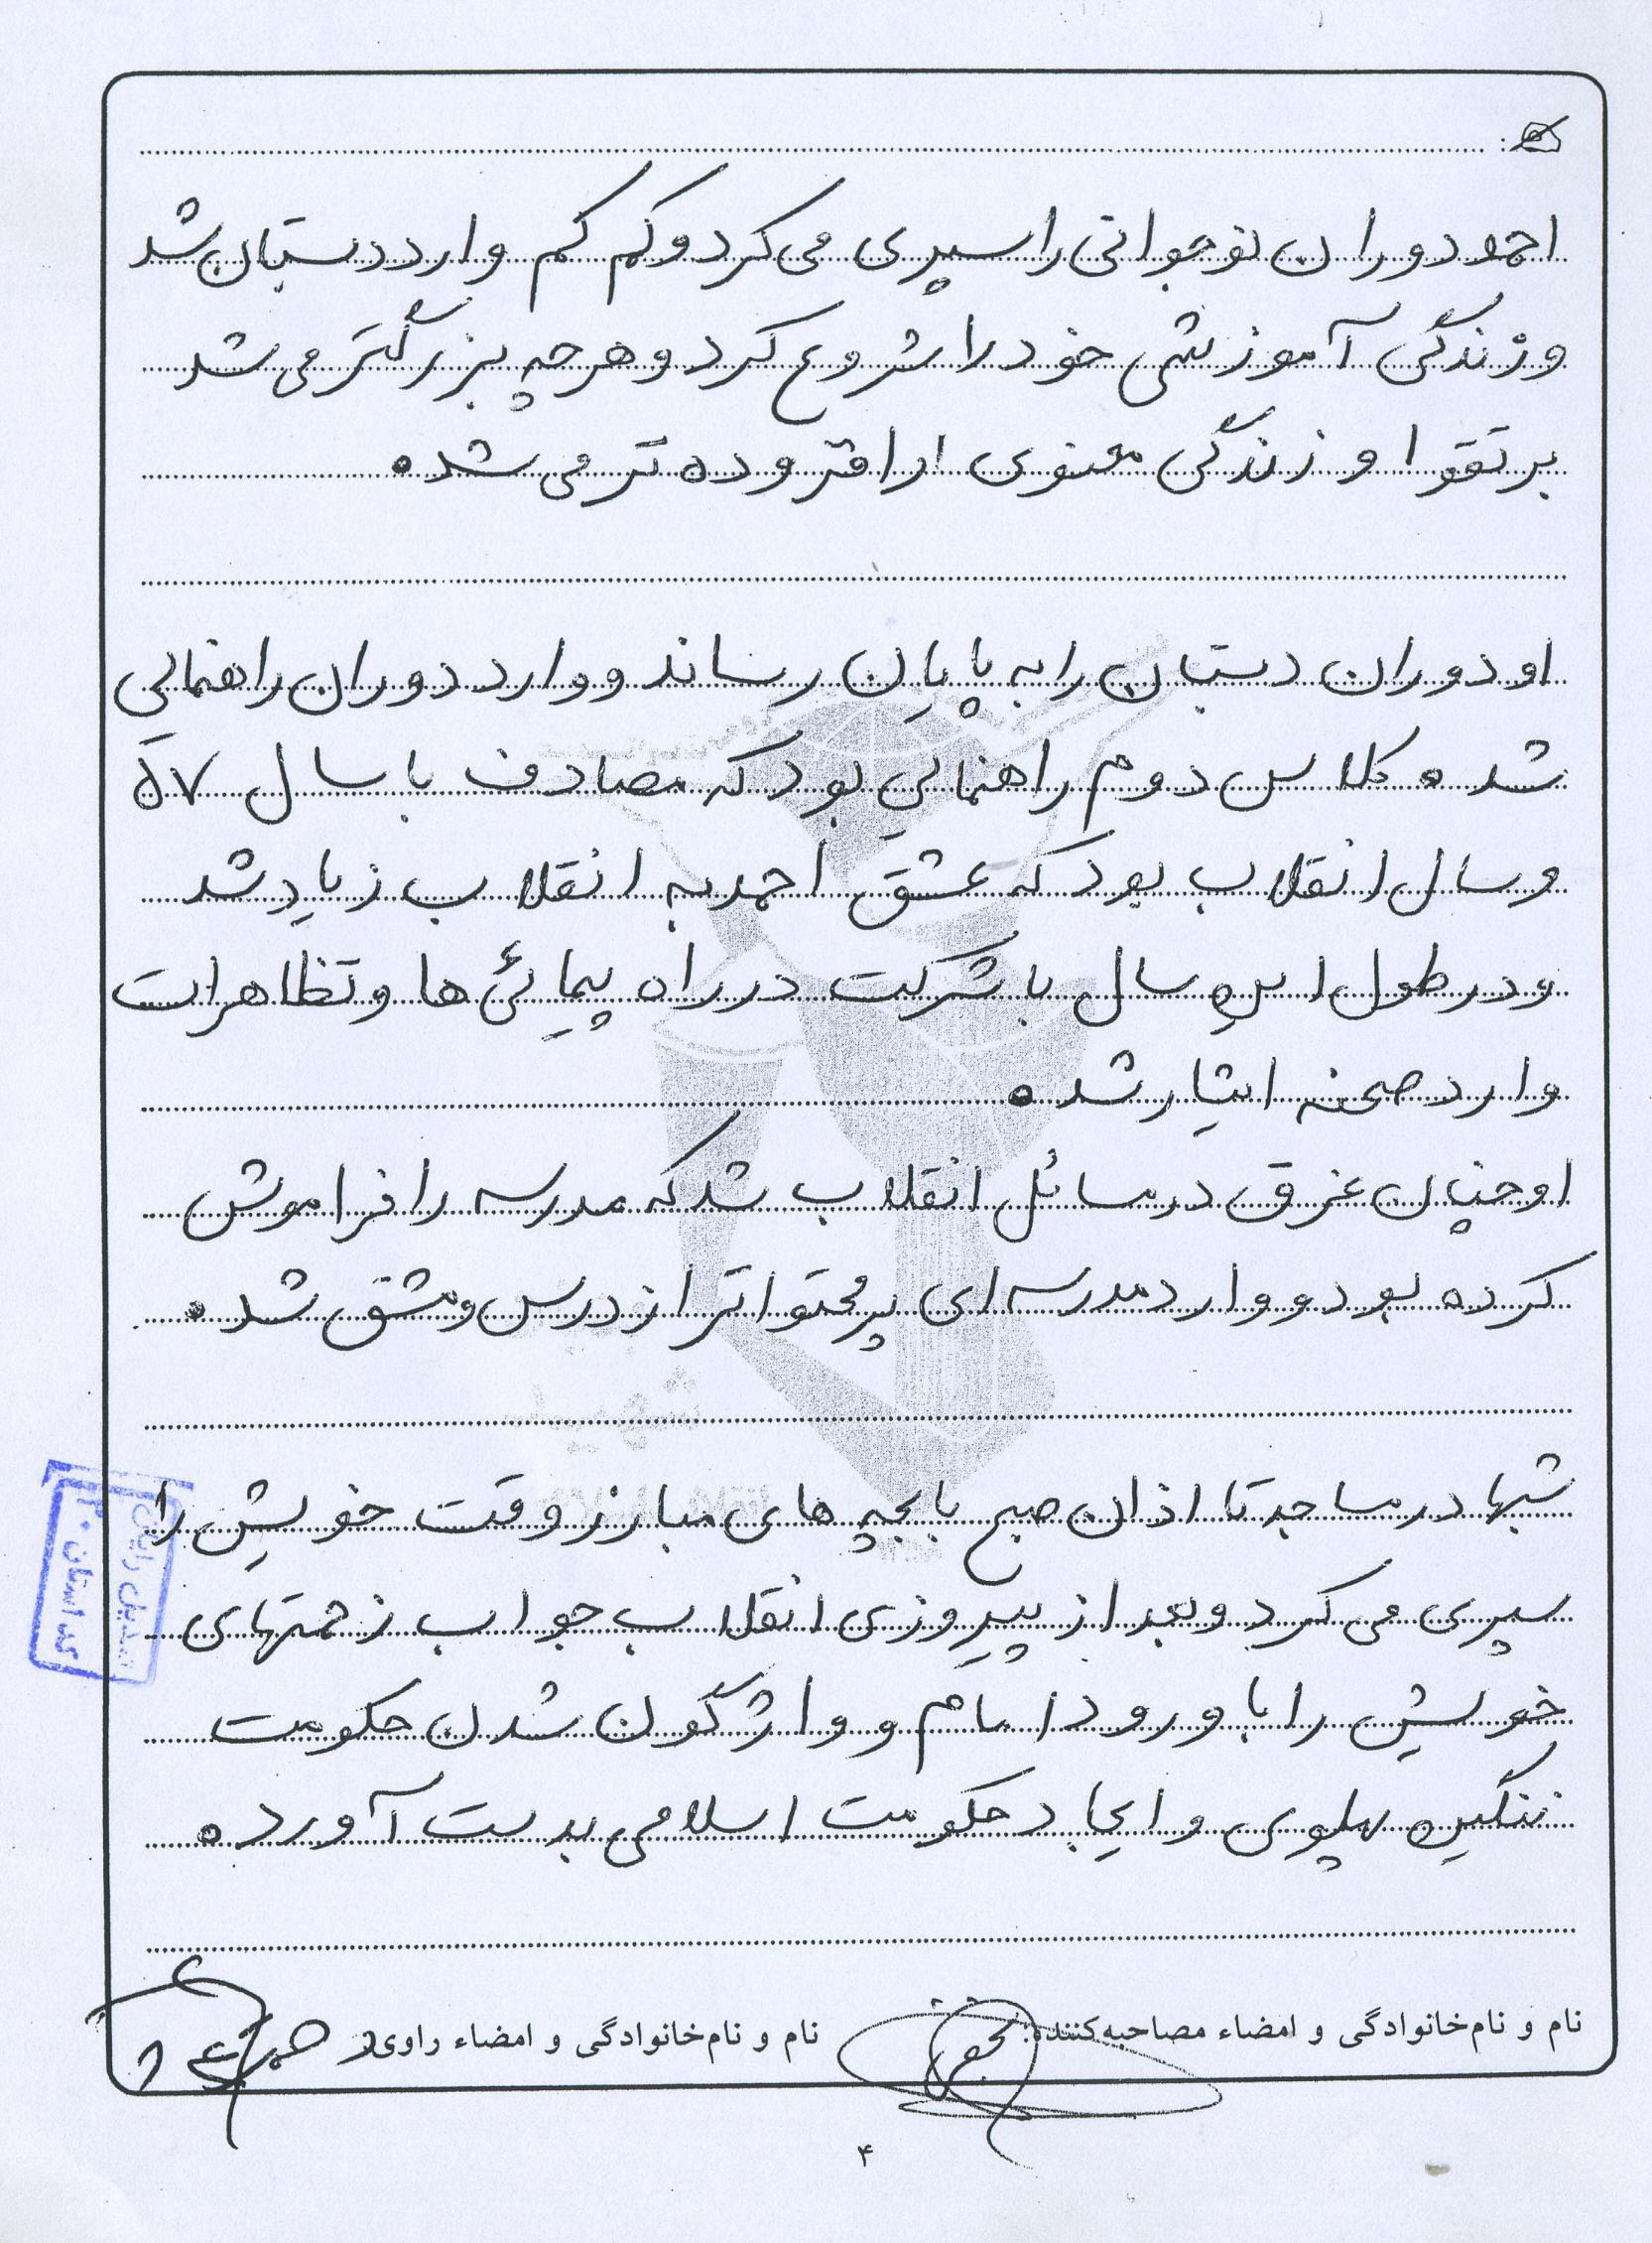 احمد دوران نوجوانی را سپری می کرد و کم کم وارد دبستان شد
و زندگی آموزشی خود را شروع کرد و هر چه بزرگتر می شد
بر تقوا و زندگی معنوی او افزوده تر می شد.
او دوران دبستان را به پایان رساند و وارد دوران راهنمایی
شد. کلاس دوم راهنمایی بود که مصادف با سال ۵۷
و سال انقلاب بود که عشق احمد به انقلاب زیاد شد
و در طول این سال با شرکت در راه پیمائی ها و تظاهرات
وارد صحنه ایثار شد.
او چنان غرق در مسائل انقلاب شد که مدرسه را فراموش
کرده بود و وارد مدرسه ای پر محتواتر از درس و مشق شد.
شهید
شبها در مساجد تا اذان صبح با بچه های مبارز وقت خویش را
سپری می کرد و بعد از پیروزی انقلاب جواب زحمتهای
خویش را با ورود امام و واژگون شدن حکومت
ننگین پهلوی و ایجاد حکومت اسلامی بدست آورد.
کد استان ۲۰
نام و نام‌خانوادگی و امضاء مصاحبه‌کننده:
نام و نام‌خانوادگی و امضاء راوی:
۴